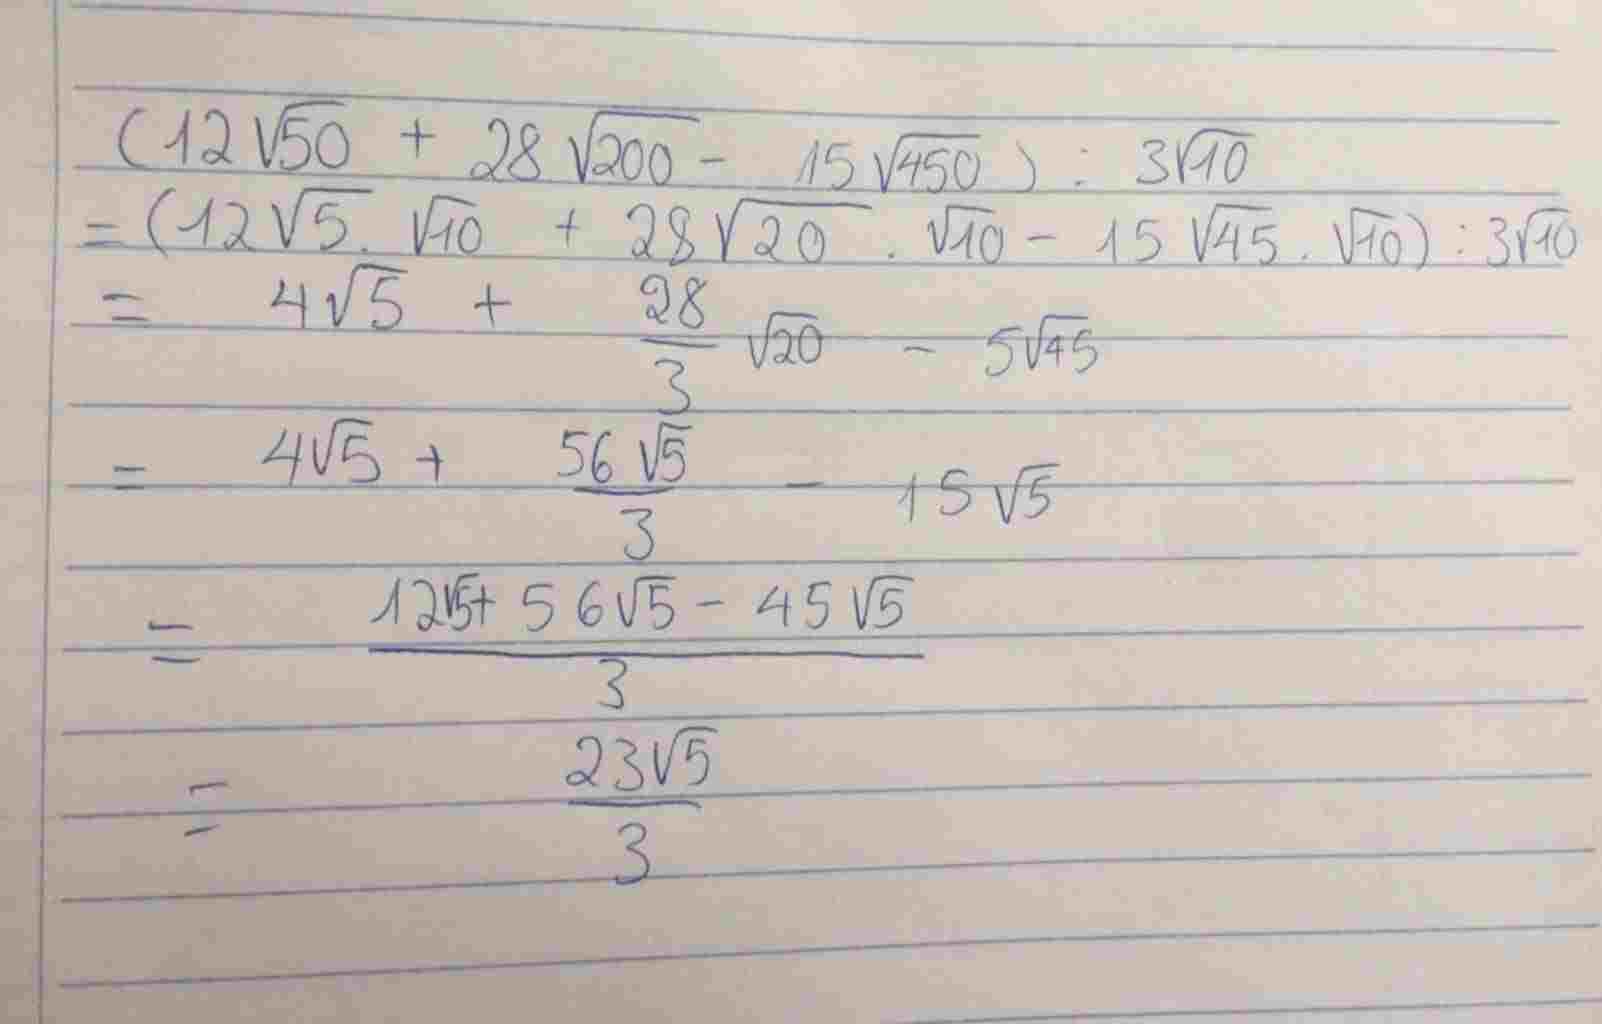 (12√50 + 28√200 - 15√450) : 3√10
= (12√5 . √10 + 28√20 . √10 - 15√45 . √10) : 3√10
= 4√5 + 28/3 √20 - 5√45
= 4√5 + 56√5/3 - 15√5
= (12√5 + 56√5 - 45√5)/3
= 23√5/3